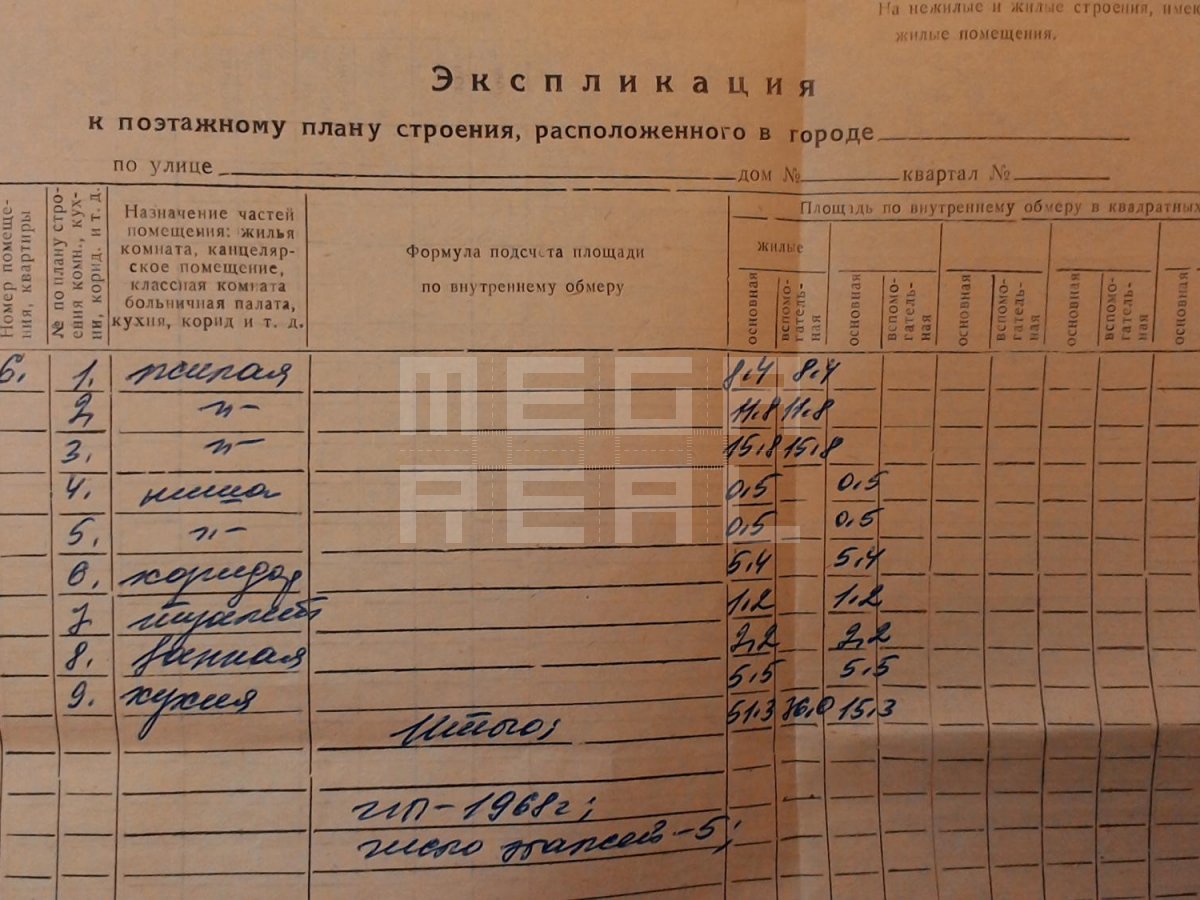 На нежилые и жилые строения, имею
жилые помещения.
Экспликация
к поэтажному плану строения, расположенного в городе
по улице дом № квартал №
Номер помеще-
ния, квартиры
№ по плану стро-
ения комн., кух-
ни, корид. и т. д.
Назначение частей
помещения: жилья
комната, канцеляр-
ское помещение,
классная комната
больничная палата,
кухня, корид и т. д.
Формула подсчета площади
по внутреннему обмеру
Площадь по внутреннему обмеру в квадратных
жилые
основная
вспомо-
гатель-
ная
основная
вспомо-
гатель-
ная
основная
вспомо-
гатель-
ная
основная
вспомо-
гатель-
ная
основная
6. 1. жилая 8.4 8.4
2 -"- 11.8 11.8
3. -"- 15.8 15.8
4. ниша 0.5 0.5
5. -"- 0.5 0.5
6. коридор 5.4 5.4
7 туалет 1.2 1.2
8. ванная 2.2 2.2
9. кухня 5.5 5.5
Итого: 51.3 36.0 15.3
гп-1968г;
число этажей-5;
MEGA
REAL